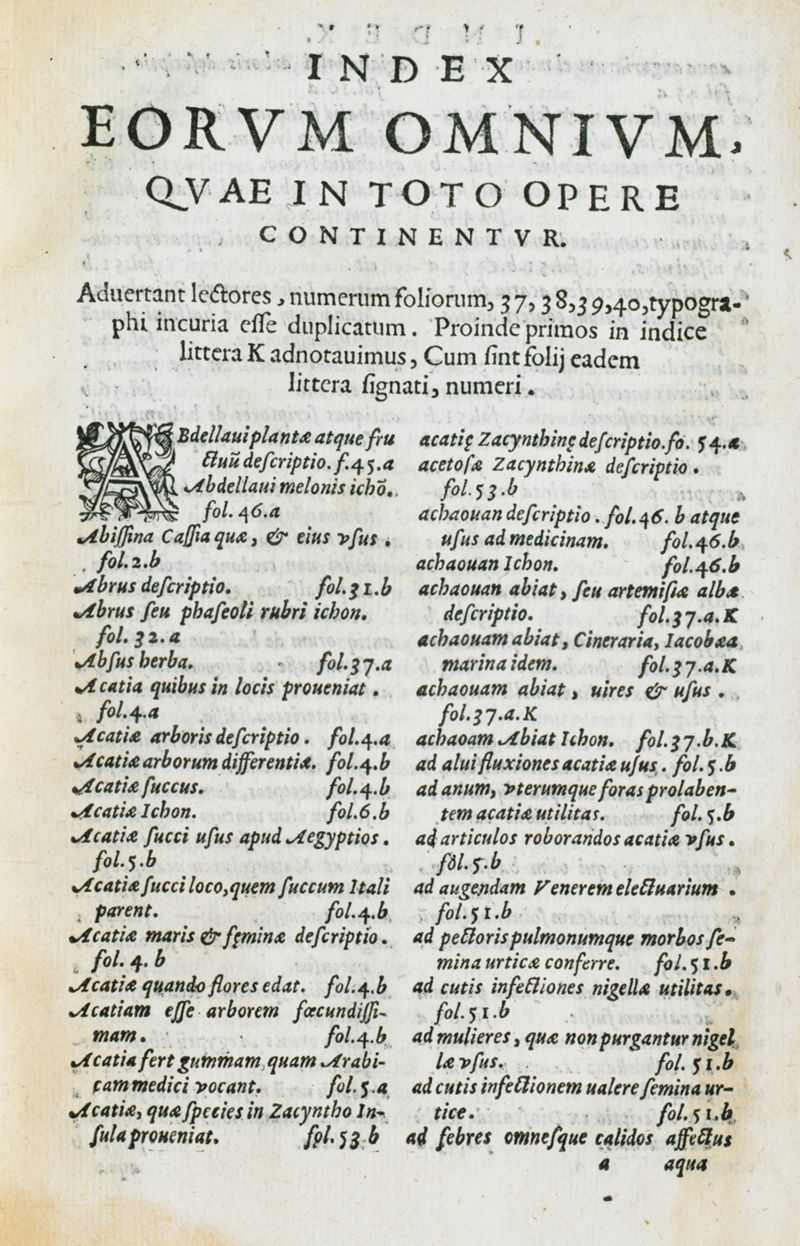 INDEX
EORVM OMNIVM,
QVAE IN TOTO OPERE
CONTINENTVR.
Aduertant lectores, numerum foliorum, 37, 38, 39, 40, typogra-
phi incuria esse duplicatum. Proinde primos in indice
littera K adnotauimus, Cum sint folij eadem
littera signati, numeri.
ABdellaui plantæ atque fru
ctuũ descriptio. f. 45.a
Abdellaui melonis ichõ.
fol. 46.a
Abissina Cassia quæ, & eius vsus.
fol. 2.b
Abrus descriptio. fol. 31.b
Abrus seu phaseoli rubri ichon.
fol. 32.a
Absus herba. fol. 37.a
Acatia quibus in locis proueniat.
fol. 4.a
Acatiæ arboris descriptio. fol. 4.a
Acatiæ arborum differentiæ. fol. 4.b
Acatiæ succus. fol. 4.b
Acatiæ Ichon. fol. 6.b
Acatiæ succi usus apud Aegyptios.
fol. 5.b
Acatiæ succi loco, quem succum Itali
parent. fol. 4.b
Acatiæ maris & feminæ descriptio.
fol. 4.b
Acatiæ quando flores edat. fol. 4.b
Acatiam esse arborem fœcundissi-
mam. fol. 4.b
Acatia fert gummam quam Arabi-
cam medici vocant. fol. 5.a
Acatiæ, quæ species in Zacyntho In-
sula proueniat. fol. 53.b
acatię Zacynthinę descriptio. fo. 54.a
acetosæ Zacynthinæ descriptio.
fol. 53.b
achaouan descriptio. fol. 46.b atque
usus ad medicinam. fol. 46.b
achaouan Ichon. fol. 46.b
achaouan abiat, seu artemisiæ albæ
descriptio. fol. 37.a.K
achaouam abiat, Cineraria, Iacobæa
marina idem. fol. 37.a.K
achaouam abiat, uires & usus.
fol. 37.a.K
achaoam Abiat Ichon. fol. 37.b.K
ad alui fluxiones acatiæ usus. fol. 5.b
ad anum, vterumque foras prolaben-
tem acatiæ utilitas. fol. 5.b
ad articulos roborandos acatiæ vsus.
fol. 5.b
ad augendam Venerem electuarium.
fol. 51.b
ad pectoris pulmonumque morbos se-
mina urticæ conferre. fol. 51.b
ad cutis infectiones nigellæ utilitas.
fol. 51.b
ad mulieres, quæ non purgantur nigel
læ vsus. fol. 51.b
ad cutis infectionem ualere semina ur-
tice. fol. 51.b
ad febres omnesque calidos affectus
a aqua